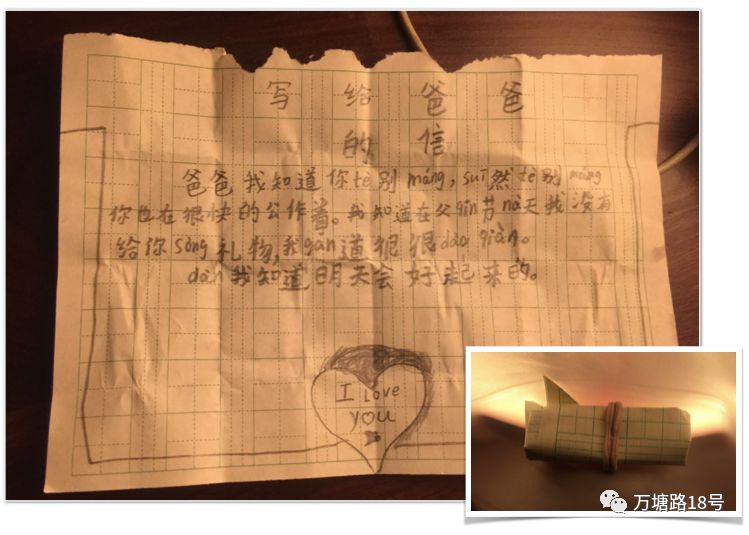 写给爸爸
的信
爸爸我知道你tè别máng,suī然tè别máng
你也在很快的公作着。我知道在父qīn节nà天我没有
给你sòng礼物,我gǎn道狠很dào qiàn。
dàn我知道明天会好起来的。
I Love
you
万塘路18号